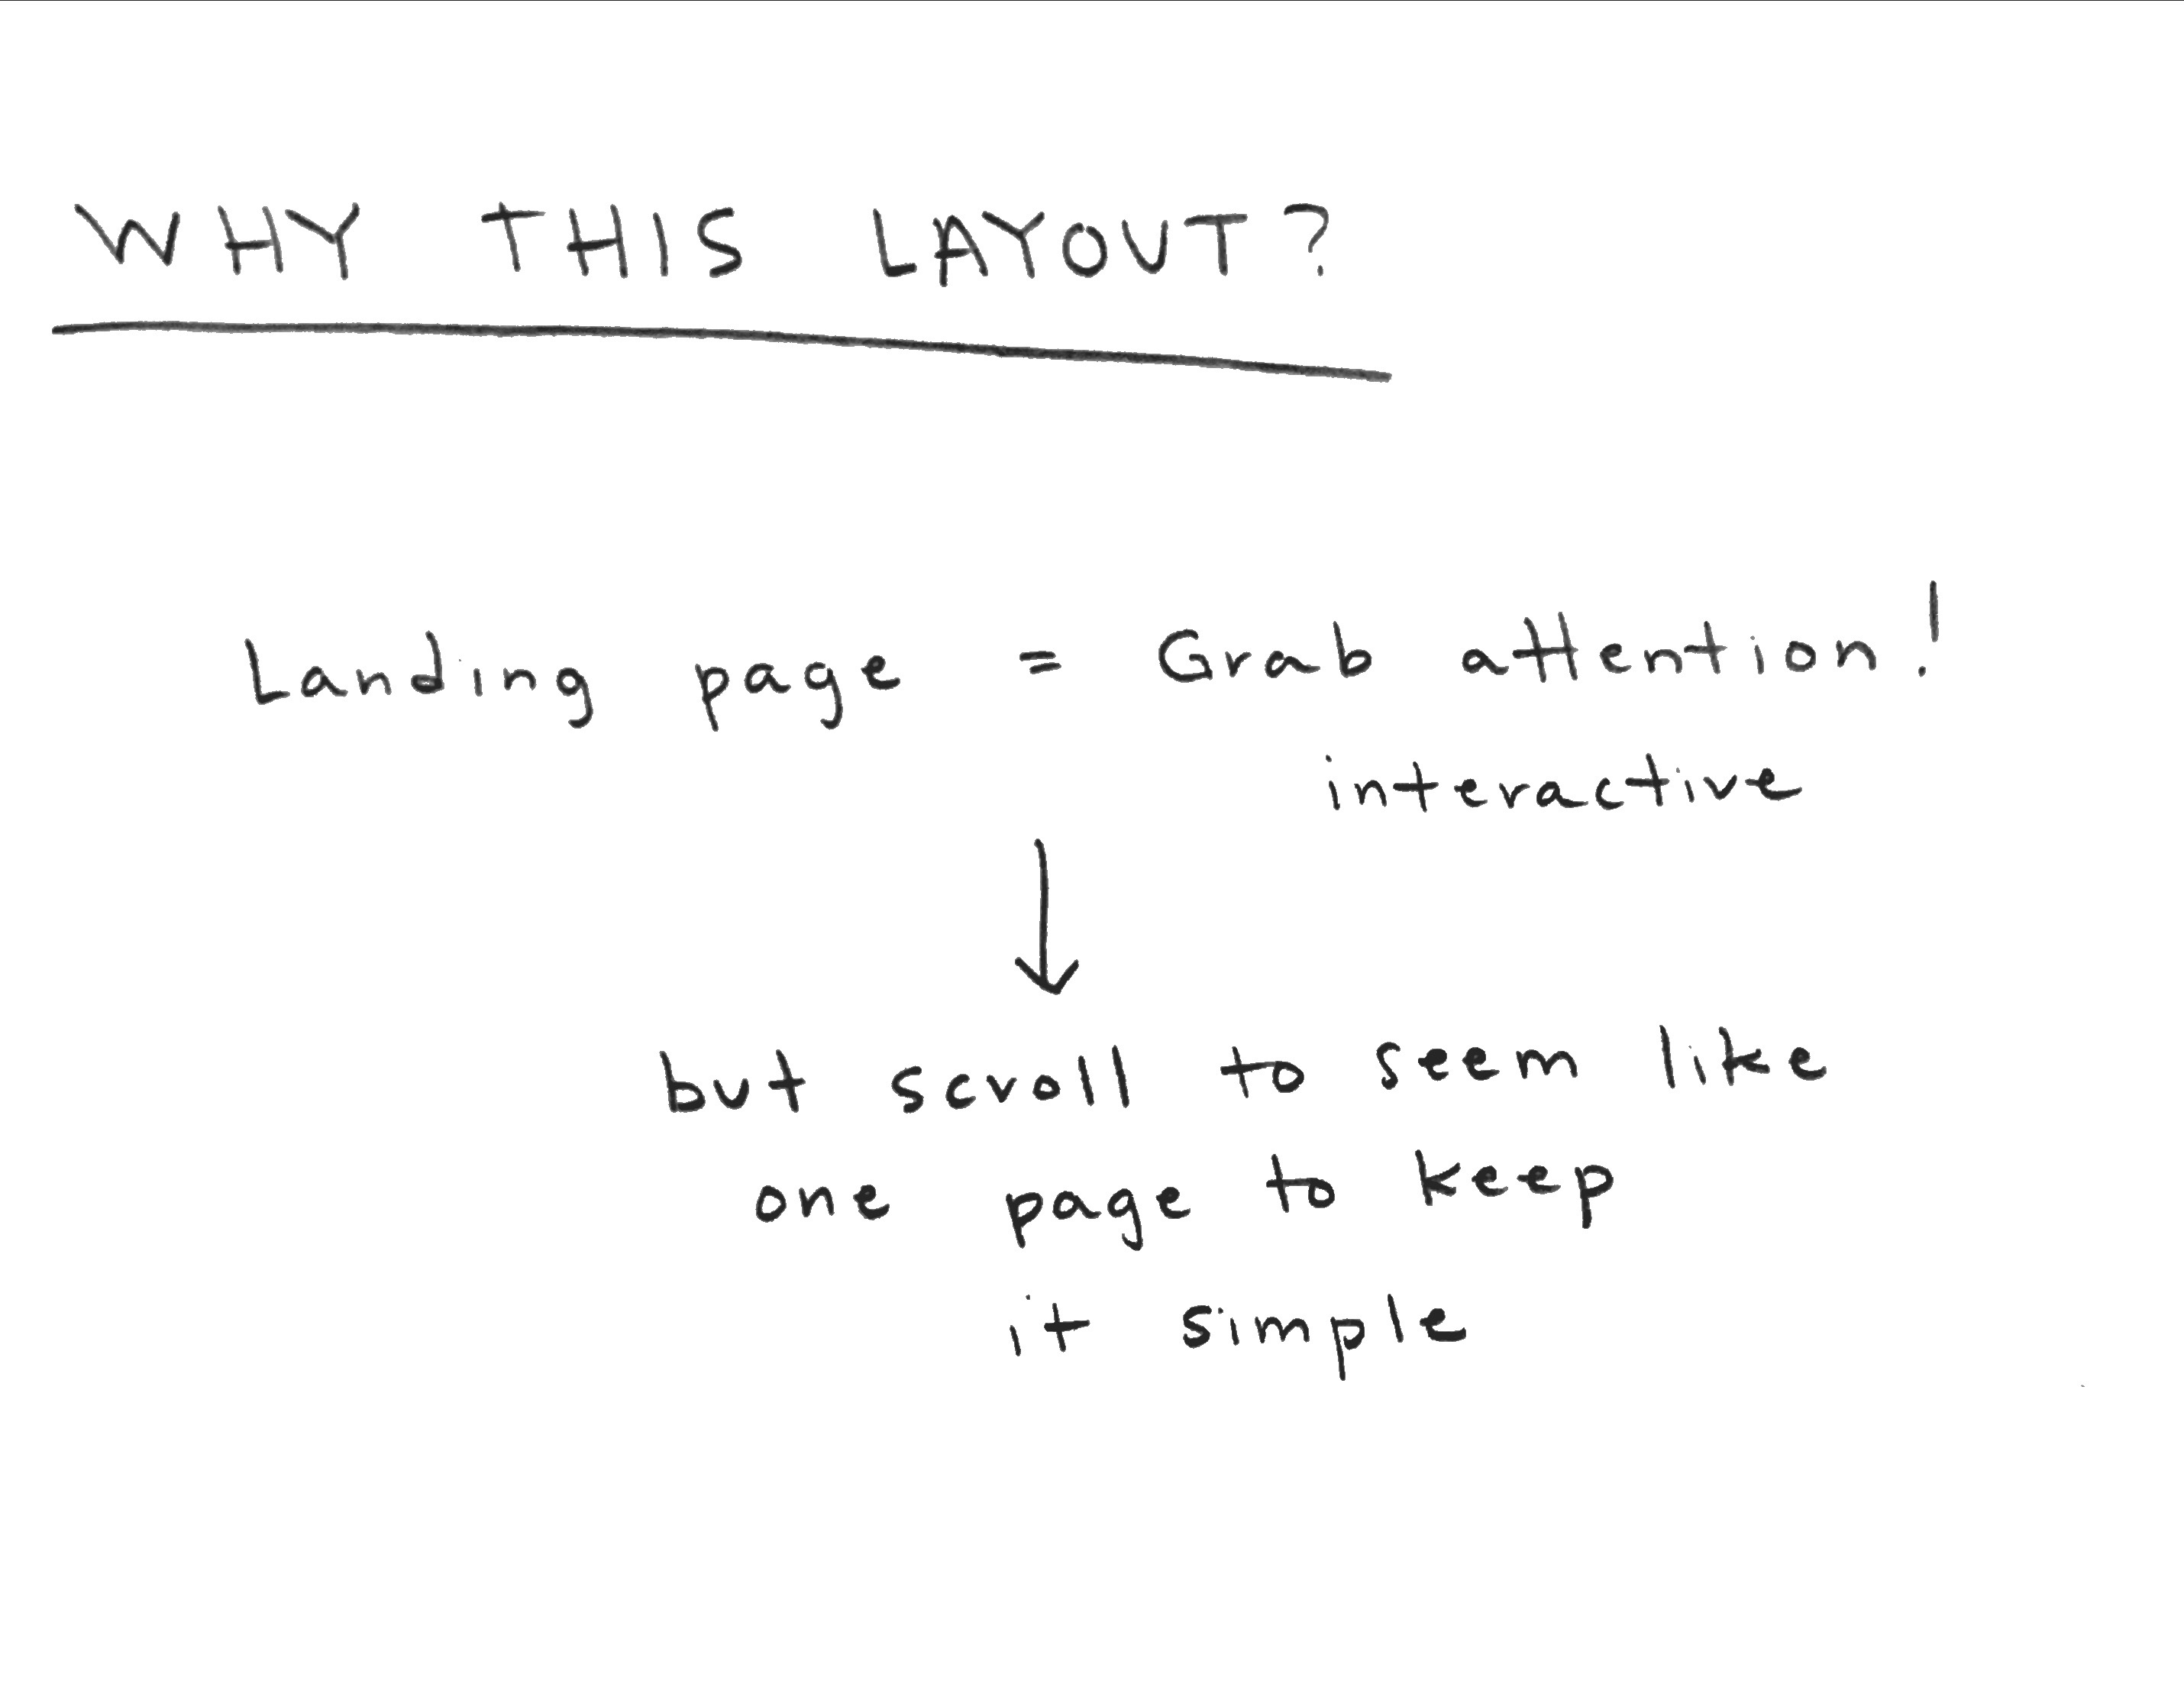 WHY THIS LAYOUT?
Landing page = Grab attention!
interactive
but scroll to seem like
one page to keep
it simple